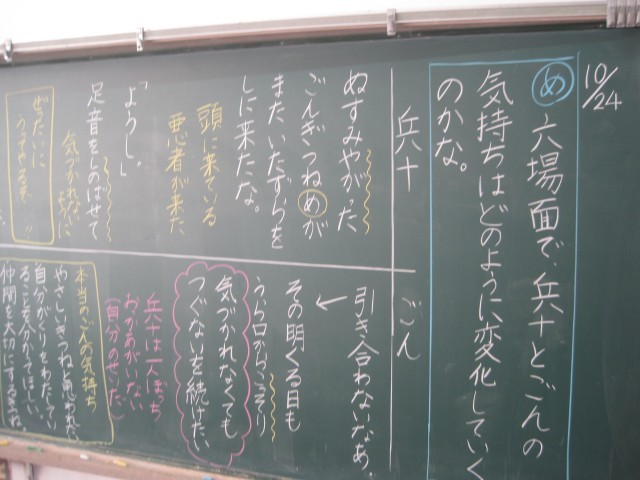 10/24
め 六場面で、兵十とごんの
気持ちはどのように変化していく
のかな。
兵十
ぬすみやがった
ごんぎつねめが
またいたずらを
しに来たな。
頭に来ている
悪者が来た
「ようし。」
足音をしのばせて
気づかれない
ように
ぜったいに
うってやるぞ!!
ごん
引き合わないなあ
その明くる日も
うら口からこっそり
気づかれなくても
つぐないを続けたい
兵十は一人ぼっち
おっかあがいない
(自分のせいだ)
本当のごんの気持ち
やさしいきつねと思われたい
自分がくりをわたしてい
ることを分かってほしい。
仲間を大切にするよね